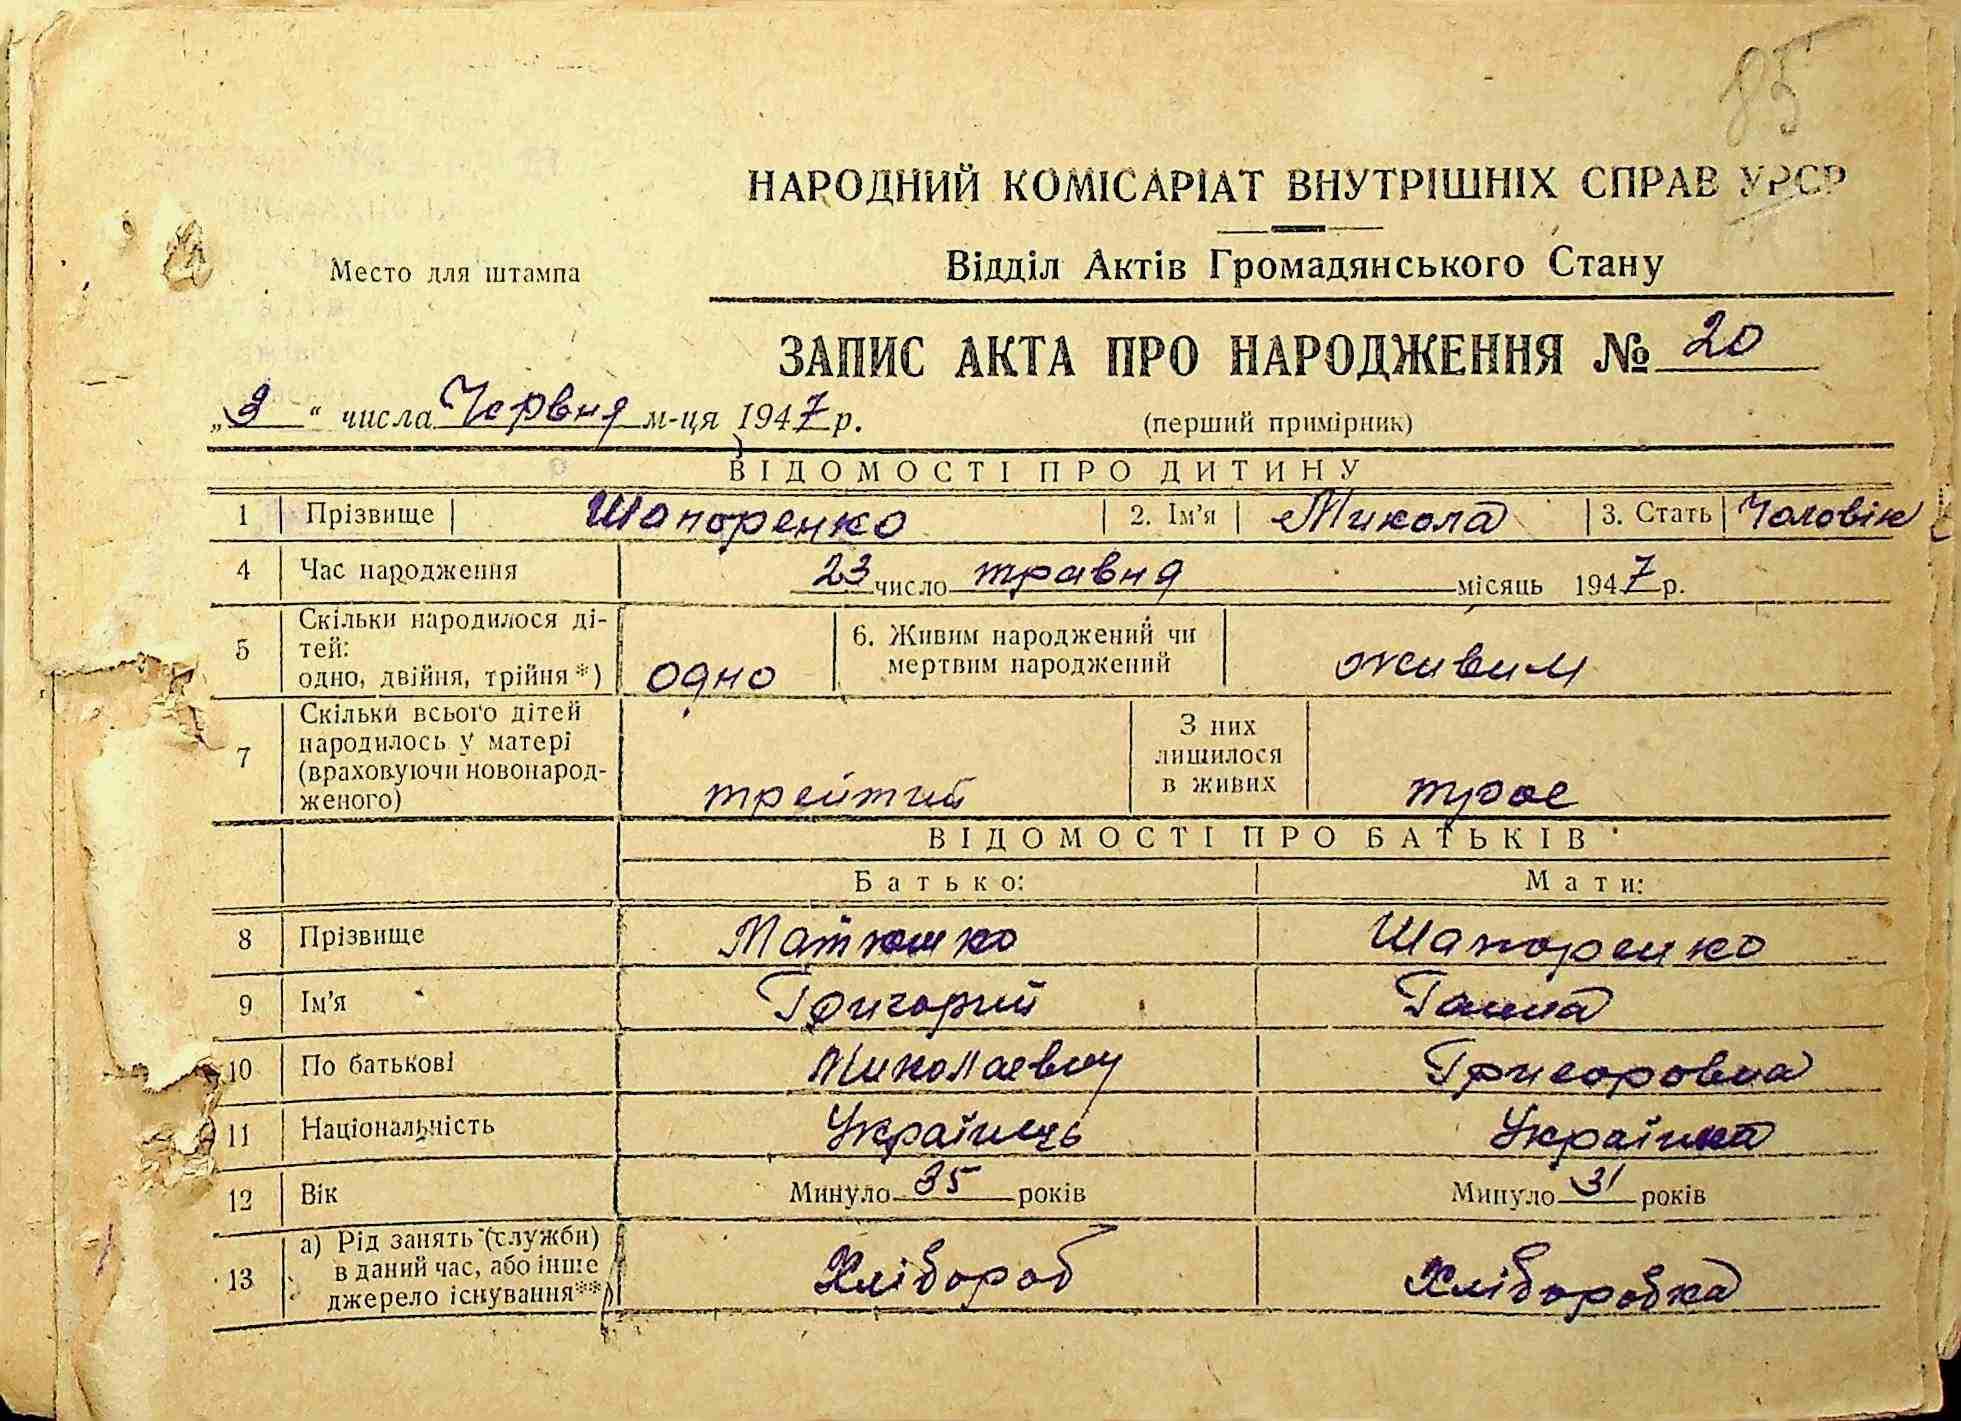 85
НАРОДНИЙ КОМІСАРІАТ ВНУТРІШНІХ СПРАВ УРСР
Место для штампа
Відділ Актів Громадянського Стану
ЗАПИС АКТА ПРО НАРОДЖЕННЯ № 20
„3“ числа Червня м-ця 1947 р. (перший примірник)
ВІДОМОСТІ ПРО ДИТИНУ
1 Прізвище Шапоренко 2. Ім'я Микола 3. Стать Чоловік
4 Час народження 23 число травня місяць 1947 р.
5 Скільки народилося ді-
тей:
одно, двійня, трійня*) одно 6. Живим народжений чи
мертвим народжений живим
7 Скільки всього дітей
народилось у матері
(враховуючи новонарод-
женого) трейтий З них
лишилося
в живих трое
ВІДОМОСТІ ПРО БАТЬКІВ
Батько: Мати:
8 Прізвище Матюшко Шапоренко
9 Ім'я Григорий Ганна
10 По батькові Миколаевич Григоровна
11 Національність Українець Українка
12 Вік Минуло 35 років Минуло 31 років
13 а) Рід занять (служби)
в даний час, або інше
джерело існування**) Хлібороб Хліборобка